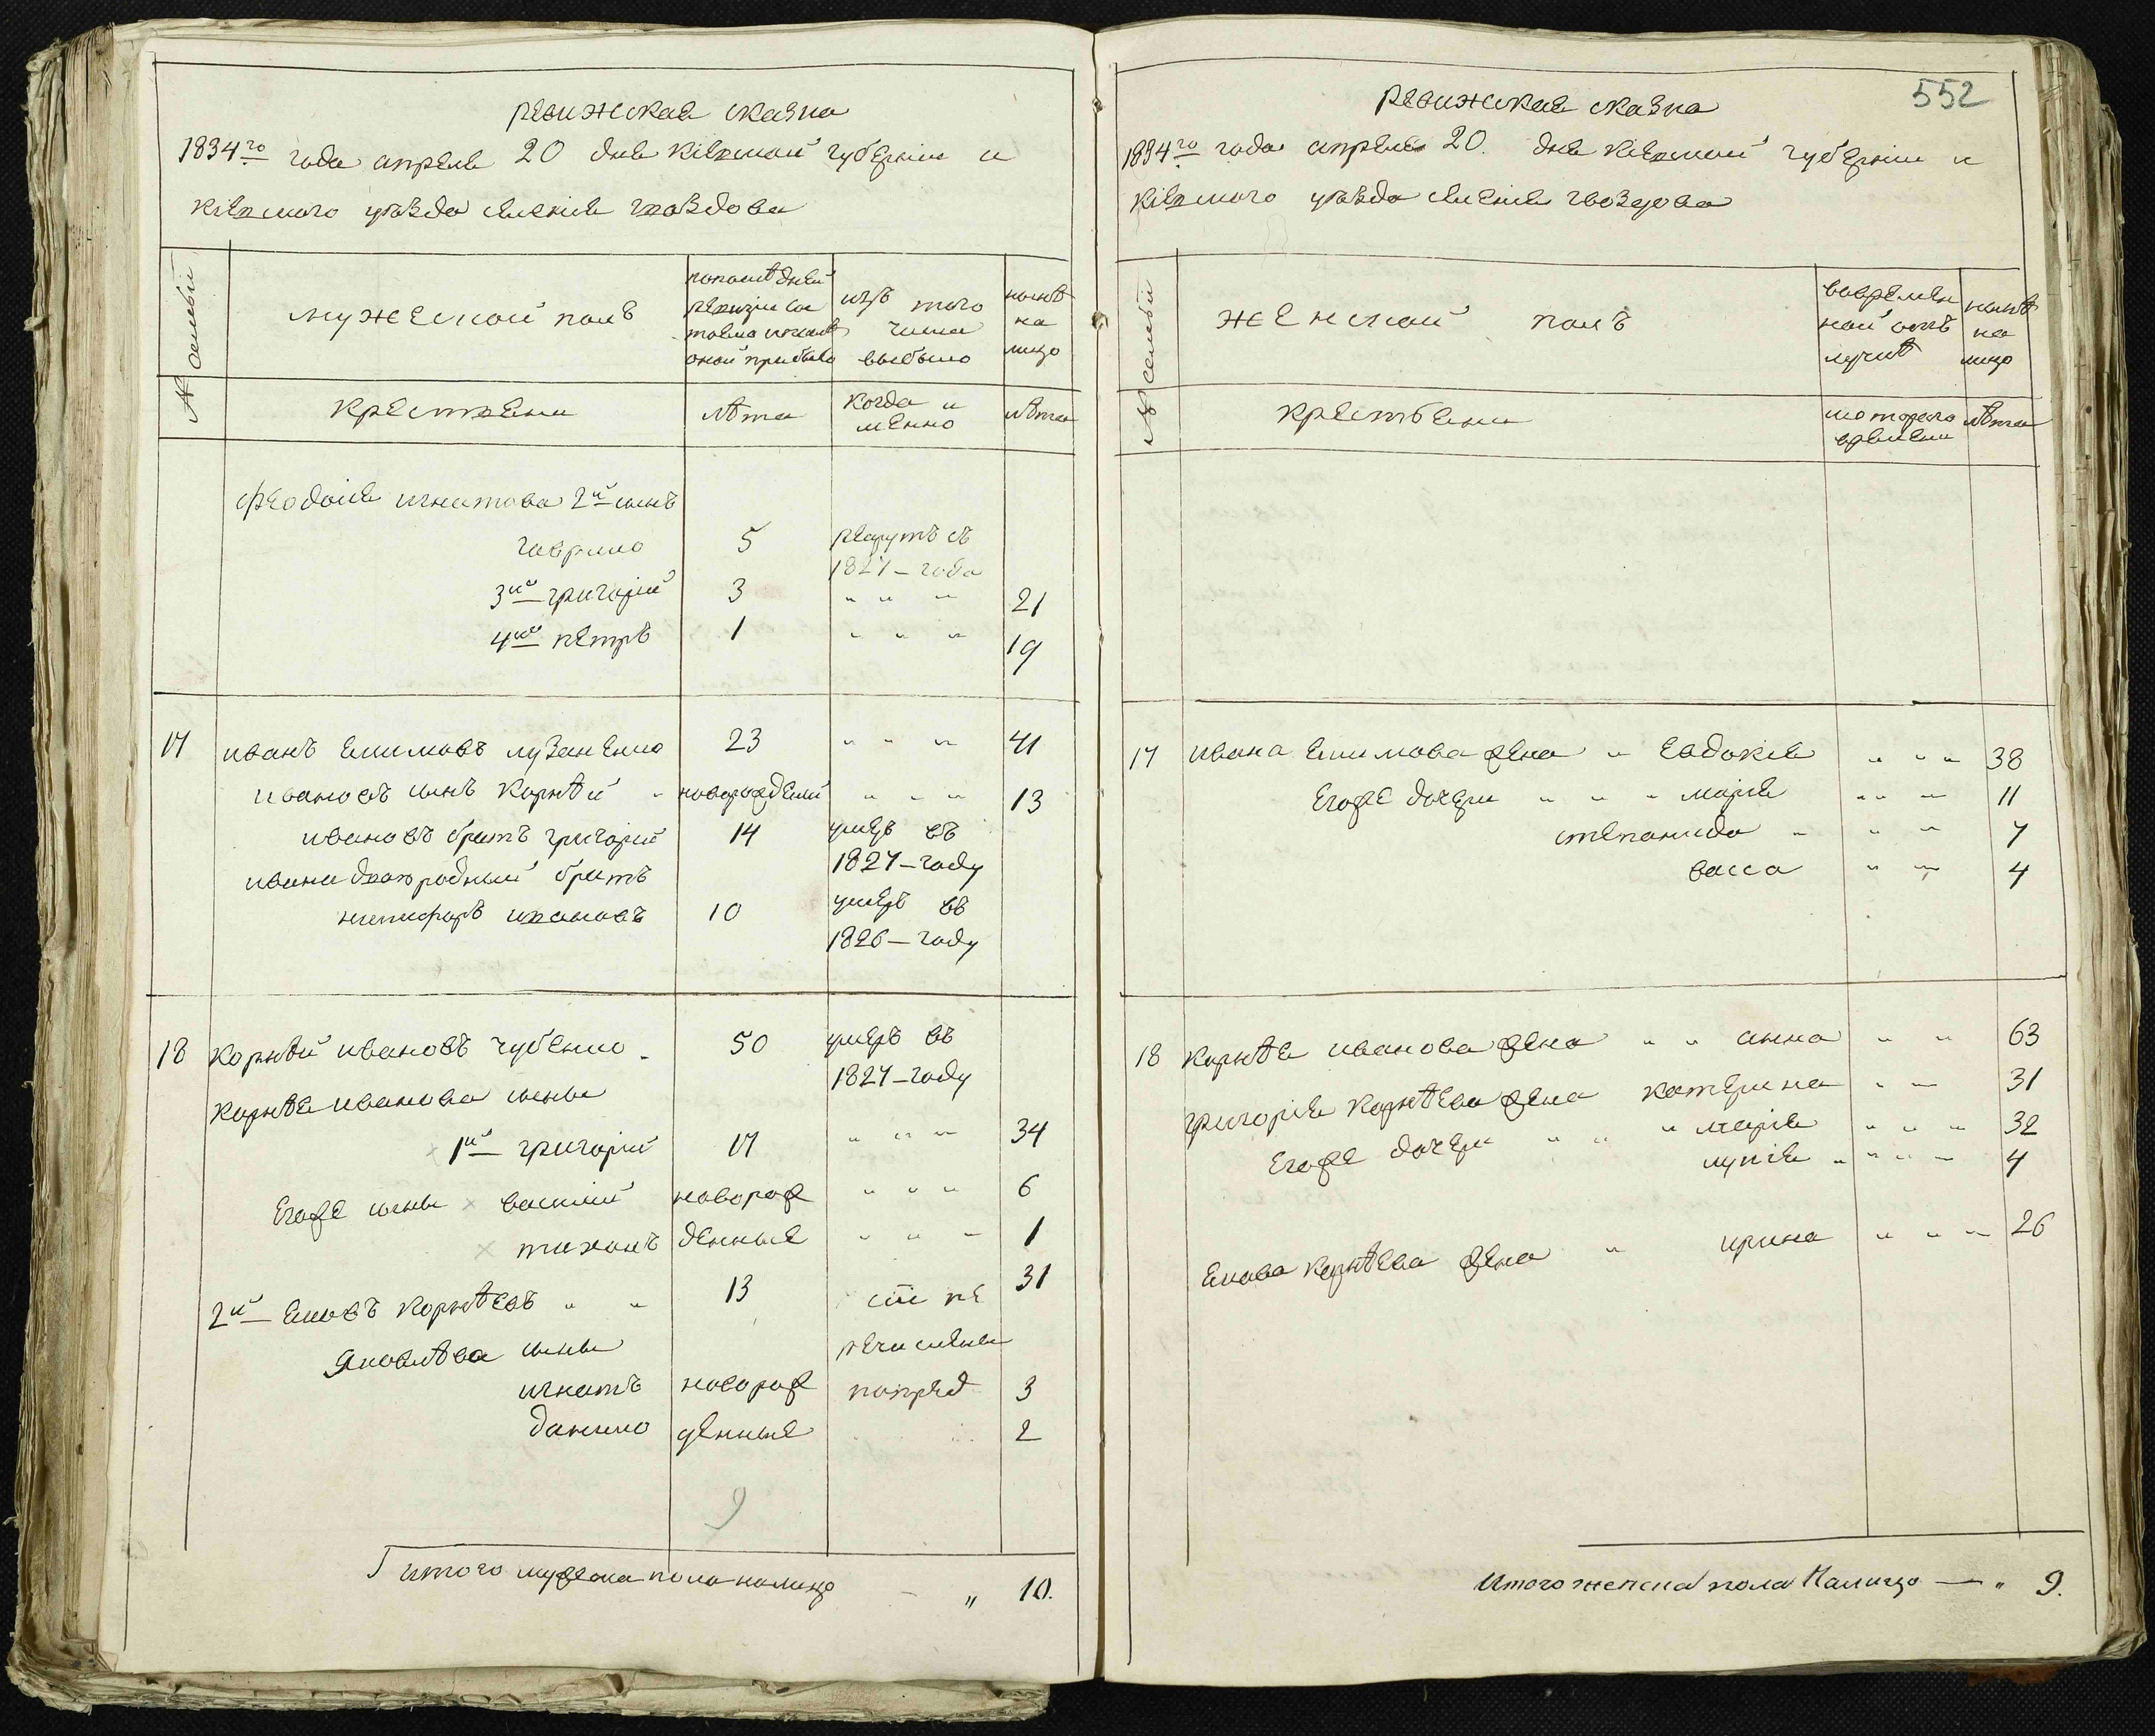 ревижская сказка
1834го года апреля 20 дня Кіевской губерніи и
Кіевского уѣзда селенія гвоздова
№ семьи
мужеской полъ
попослѣдней
ревизіи со
стояло и послѣ
оной прибыло
изъ того
числа
выбыло
нынѣ
на
лицо
крестьяни
лѣта
когда и
менно
лѣта
феодосія игнатова 2й сынъ
гаврило 5 рекрутъ съ
1827 – года
3ий григорій 3 " " " 21
4ый петръ 1 " " " 19
17 иванъ екимовъ лузаненко 23 " " " 41
ивановъ сынъ Корнѣй " новорожденный " " " 13
ивановъ братъ григорій 14 умеръ въ
1827 – году
ивана двоюродный братъ
никифоръ ивановъ 10 умеръ въ
1826 – году
18 Корнѣй ивановъ чубенко 50 умеръ въ
1827 – году
Корнѣя иванова сыны
1й григорій 17 " " " 34
Егоже сыны василій новорож " " " 6
тихонъ денные " " " 1
2й Яковъ Корнѣевъ " " 13 сіи пе 31
Яковлѣва сыны речислены
игнатъ новорож попред 3
данило денные 2
9
итого мужеска пола налицо – " 10.
552
ревижская сказка
1834го года апреля 20. дня Кіевской губерніи и
Кіевского уѣзда селенія гвоздова
№ семьи
женской полъ
вовремен
ной отъ
лучкѣ
нынѣ
на
лицо
крестьени
скоторого
времени
лѣта
17 ивана екимова жена " Евдокія " " " 38
Егоже дочери " " " марія " " " 11
степанида " " " 7
васса " " 4
18 Корнѣя иванова жена " " анна " " 63
григорія Корнѣева жена катерина " " 31
Егоже дочери " " " марія " " " 32
лукія " " " " 4
Якова Корнѣева жена " ирина " " " 26
Итого женска пола Налицо — " 9.